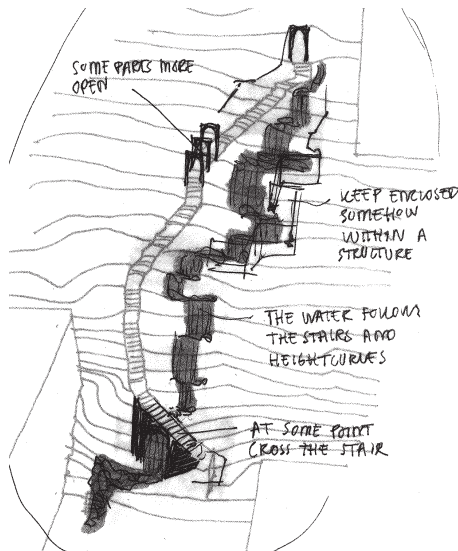 SOME PARTS MORE
OPEN
KEEP ENCLOSED
SOMEHOW
WITHIN A
STRUCTURE
THE WATER FOLLOWS
THE STAIRS AND
HEIGHTCURVES
AT SOME POINT
CROSS THE STAIR